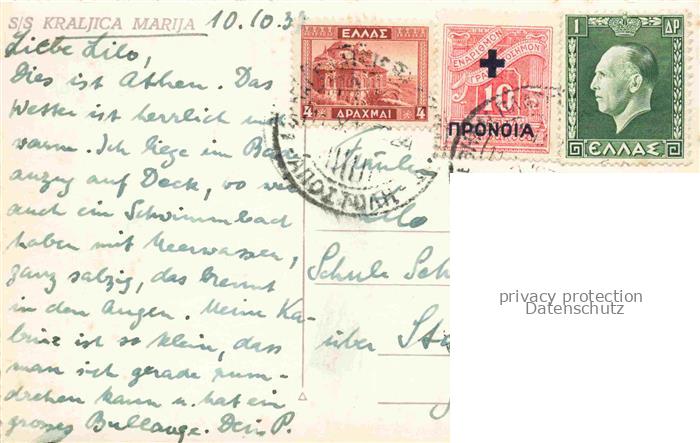 S/S KRALJICA MARIJA 10.10.38
Liebe Lilo,
Dies ist Athen. Das
Wetter ist herrlich und
warm. Ich liege im Bade
anzug auf Deck, wo wir
auch ein Schwimmbad
haben mit Meerwasser,
ganz salzig, das brennt
in den Augen. Meine Ka-
bine ist so klein, dass
man sich gerade rum-
drehen kann u. hat ein
grosses Bullauge. Dein P.
ΕΛΛΑΣ
4 ΔΡΑΧΜΑΙ 4
ΕΝΑΡΙΘΜΟΝ
ΓΡΑΜΜΑΤΟΣΗΜΟΝ
10
ΠΡΟΝΟΙΑ
1 ΔΡ
ΕΛΛΑΣ
Lilo
Schule Sch
über
privacy protection
Datenschutz